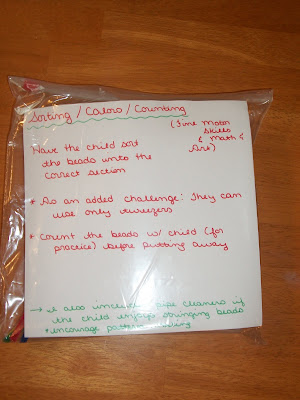 Sorting / Colors / Counting
(Fine Motor
Skills
& Math &
Art)
Have the child sort
the beads into the
correct section
* As an added challenge: They can
use only tweezers
* Count the beads w/ child (for
practice) before putting away
→ it also includes pipe cleaners if
the child enjoys stringing beads
* encourage pattern making